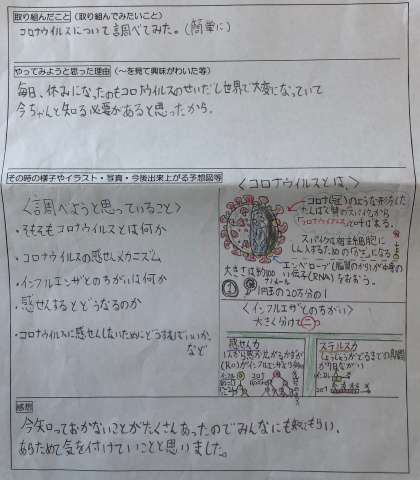 取り組んだこと (取り組んでみたいこと)
コロナウイルスについて調べてみた。(簡単に)
やってみようと思った理由 (～を見て興味がわいた等)
毎日、休みになったのもコロナウイルスのせいだし世界で大変になっていて
今ちゃんと知る必要があると思ったから。
その時の様子やイラスト・写真・今後出来上がる予想図等
〈調べようと思っていること〉
・そもそもコロナウイルスとは何か
・コロナウイルスの感せんメカニズム
・インフルエンザとのちがいは何か
・感せんするとどうなるのか
・コロナウイルスに感せんしないためにどうすればいいか、
など
〈コロナウイルスとは、〉
コロナ(冠)のような形をした
たんぱく質のスパイクから
「コロナウイルス」と呼ばれる。
スパイクは宿主細胞に
しん入するための「かぎ」になる
エンベロープ(脂質のから)が中身の
い伝子(RNA)をおおう。
大きさは約100
ナノメートル
1円玉の20万分の1
〈インフルエンザとのちがい〉
大きく分けて二つ
感せん力
(R0)がインフルエンザより
ステルス力
しょうじょうがでるまでの期間
がながい
感想
今知っておかないことがたくさんあったのでみんなにも知ってもらい、
あらためて気を付けていこと思いました。